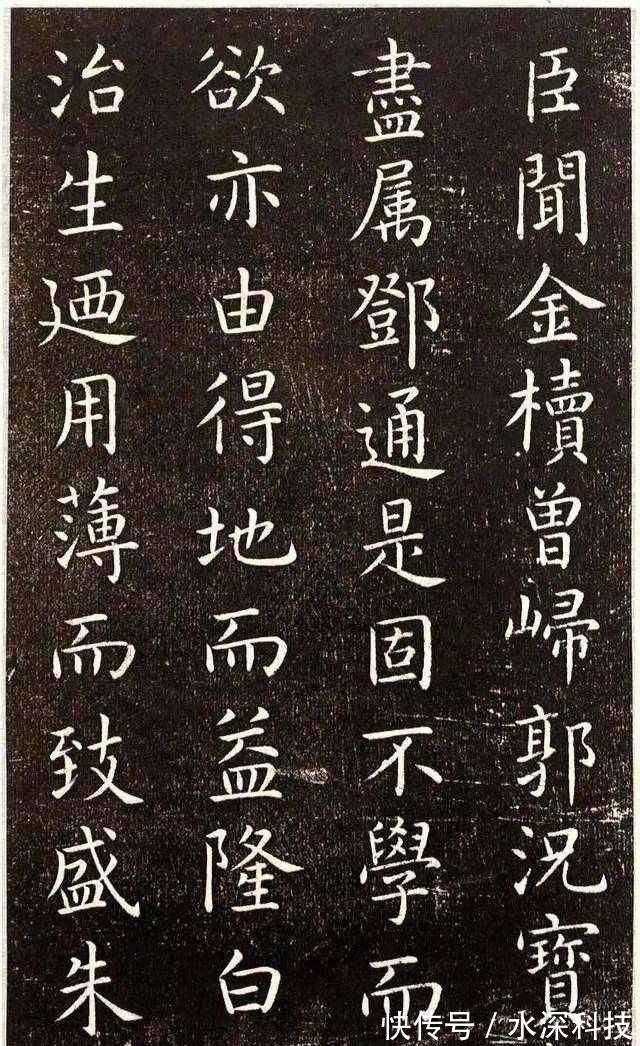 臣聞金櫝曾歸郭況寶
盡属鄧通是固不學而
欲亦由得地而益隆白
治生廼用薄而致盛朱
快传号/水深科技